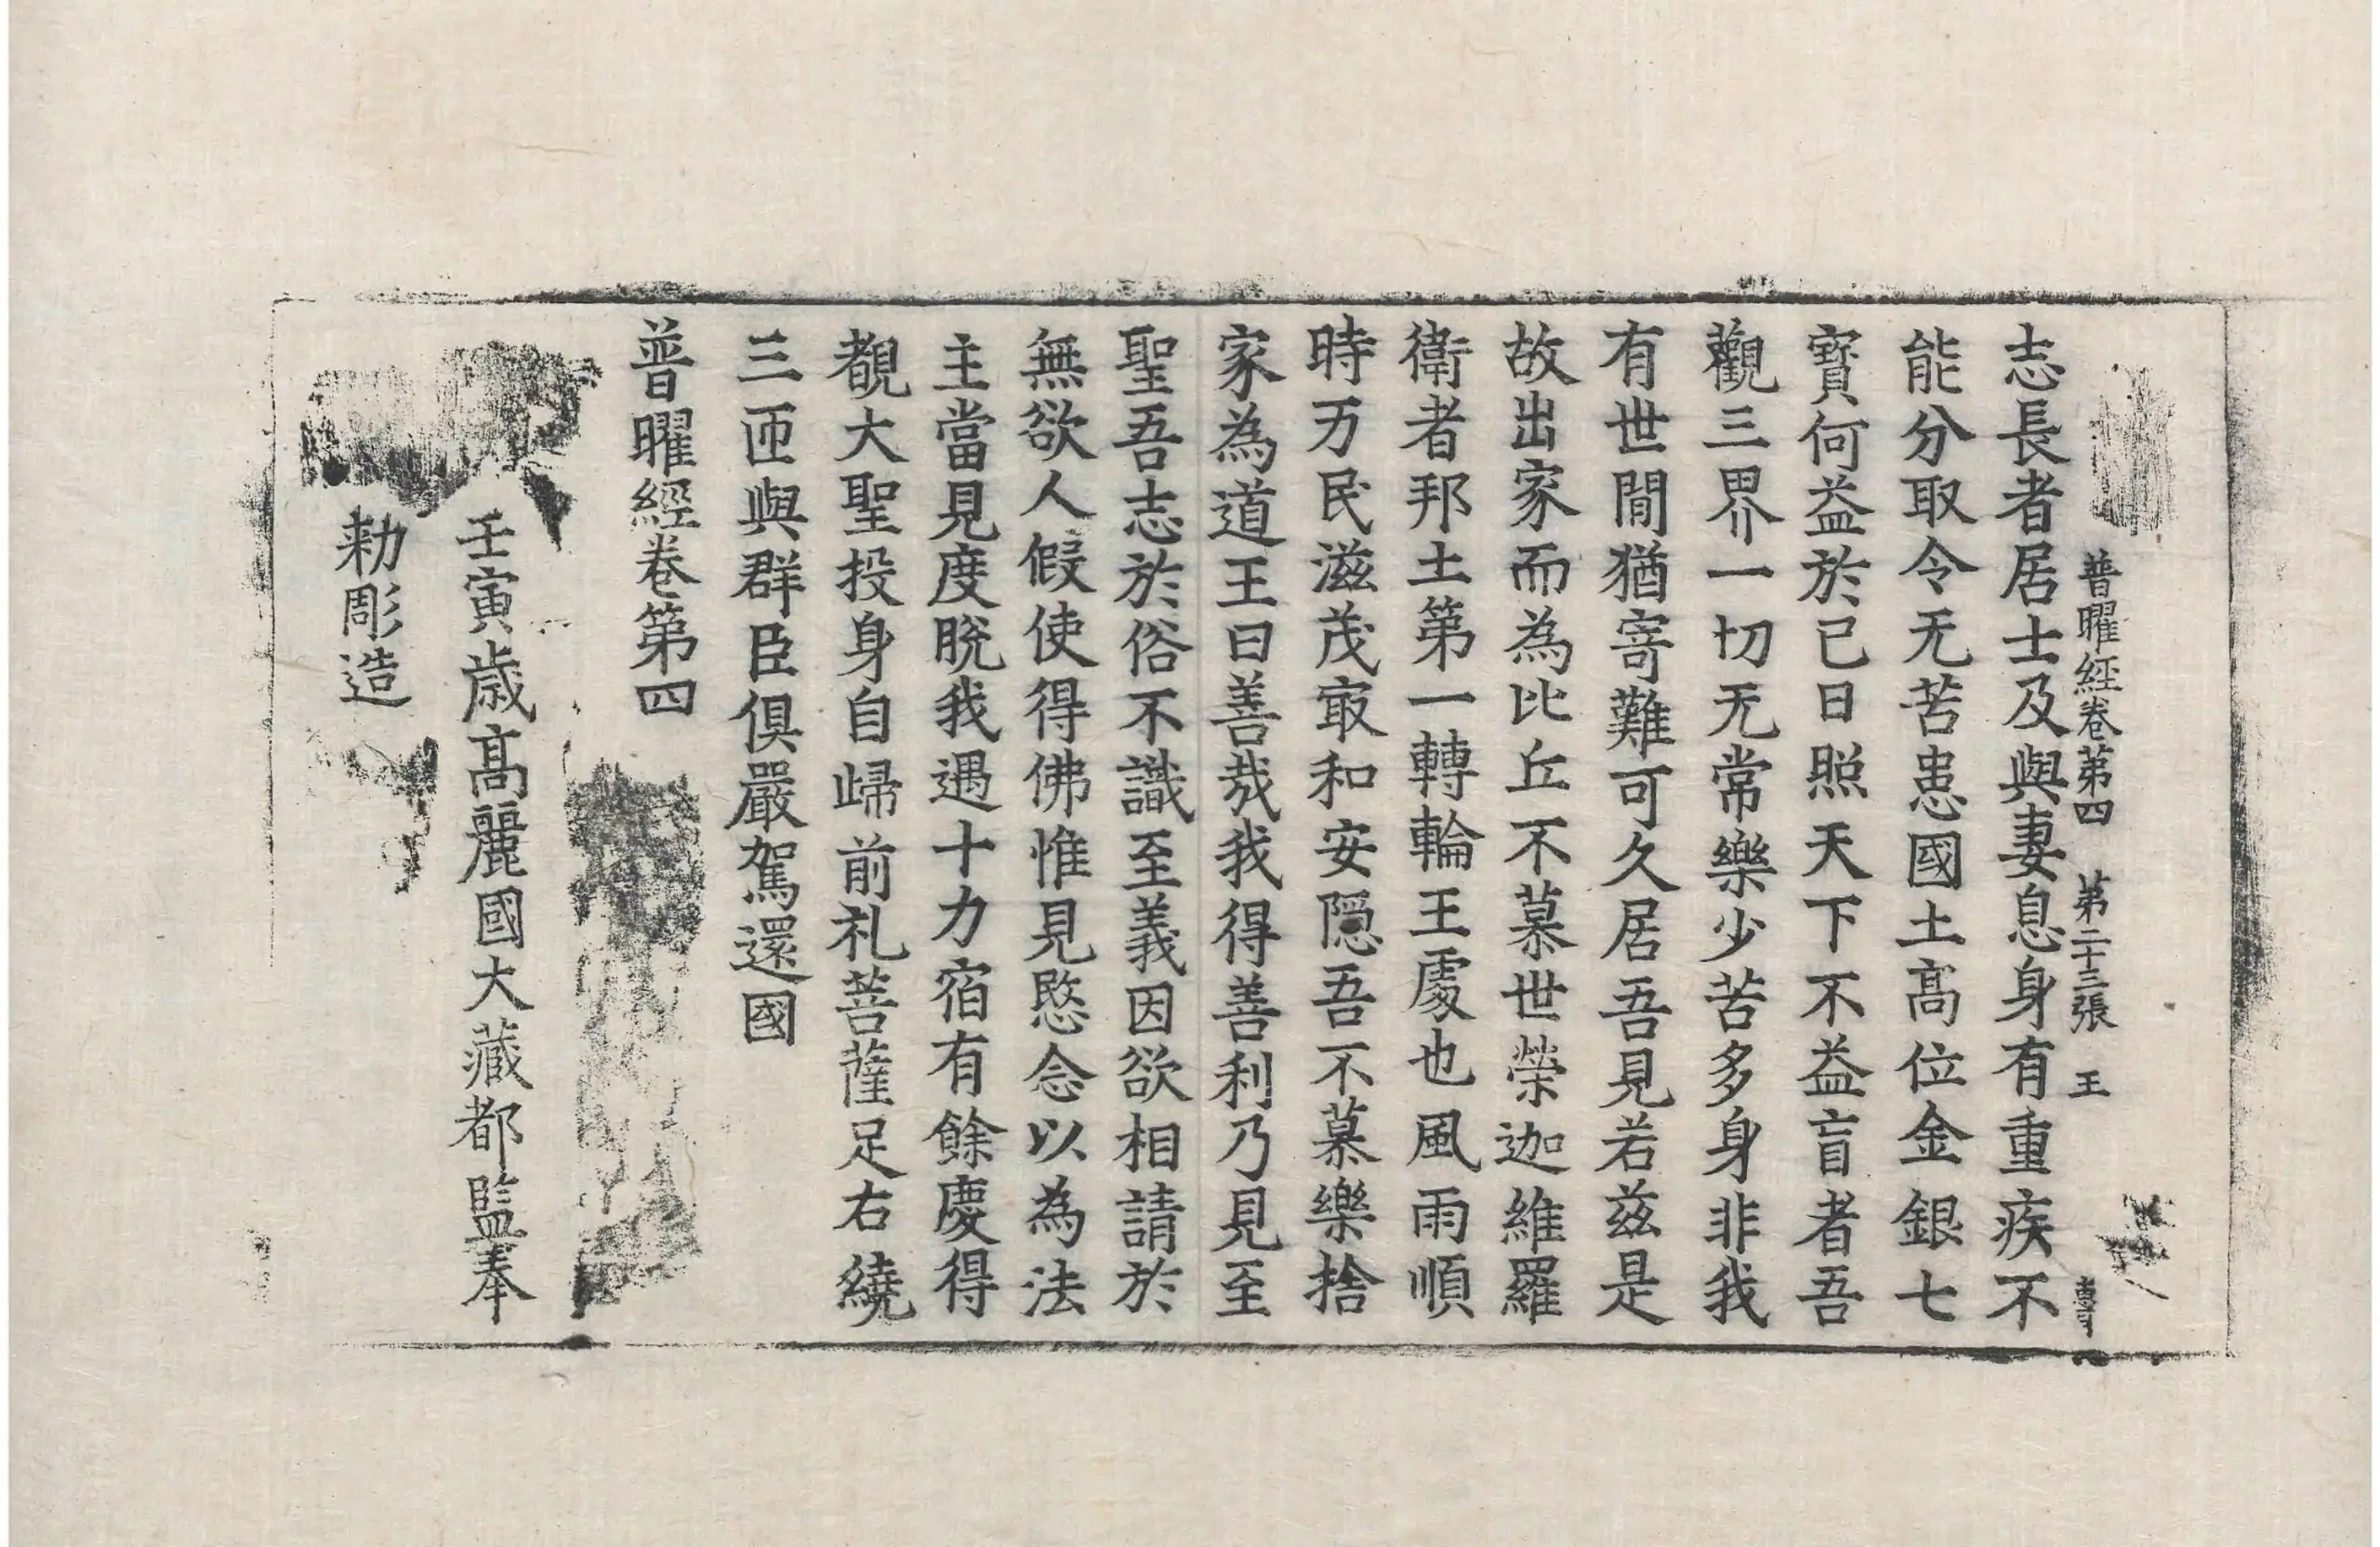 普曜經卷第四 第二十三張 王
志長者居士及與妻息身有重疾不
能分取令无苦患國土高位金銀七
寶何益於已日照天下不益盲者吾
觀三界一切无常樂少苦多身非我
有世間猶寄難可久居吾見若茲是
故出家而為比丘不慕世榮迦維羅
衛者邦土第一轉輪王處也風雨順
時万民滋茂㝡和安隱吾不慕樂捨
家為道王曰善哉我得善利乃見至
聖吾志於俗不識至義因欲相請於
無欲人假使得佛惟見愍念以為法
主當見度脫我遇十力宿有餘慶得
覩大聖投身自歸前礼菩薩足右繞
三匝與群臣俱嚴駕還國
普曜經卷第四
壬寅歲高麗國大藏都監奉
勑彫造